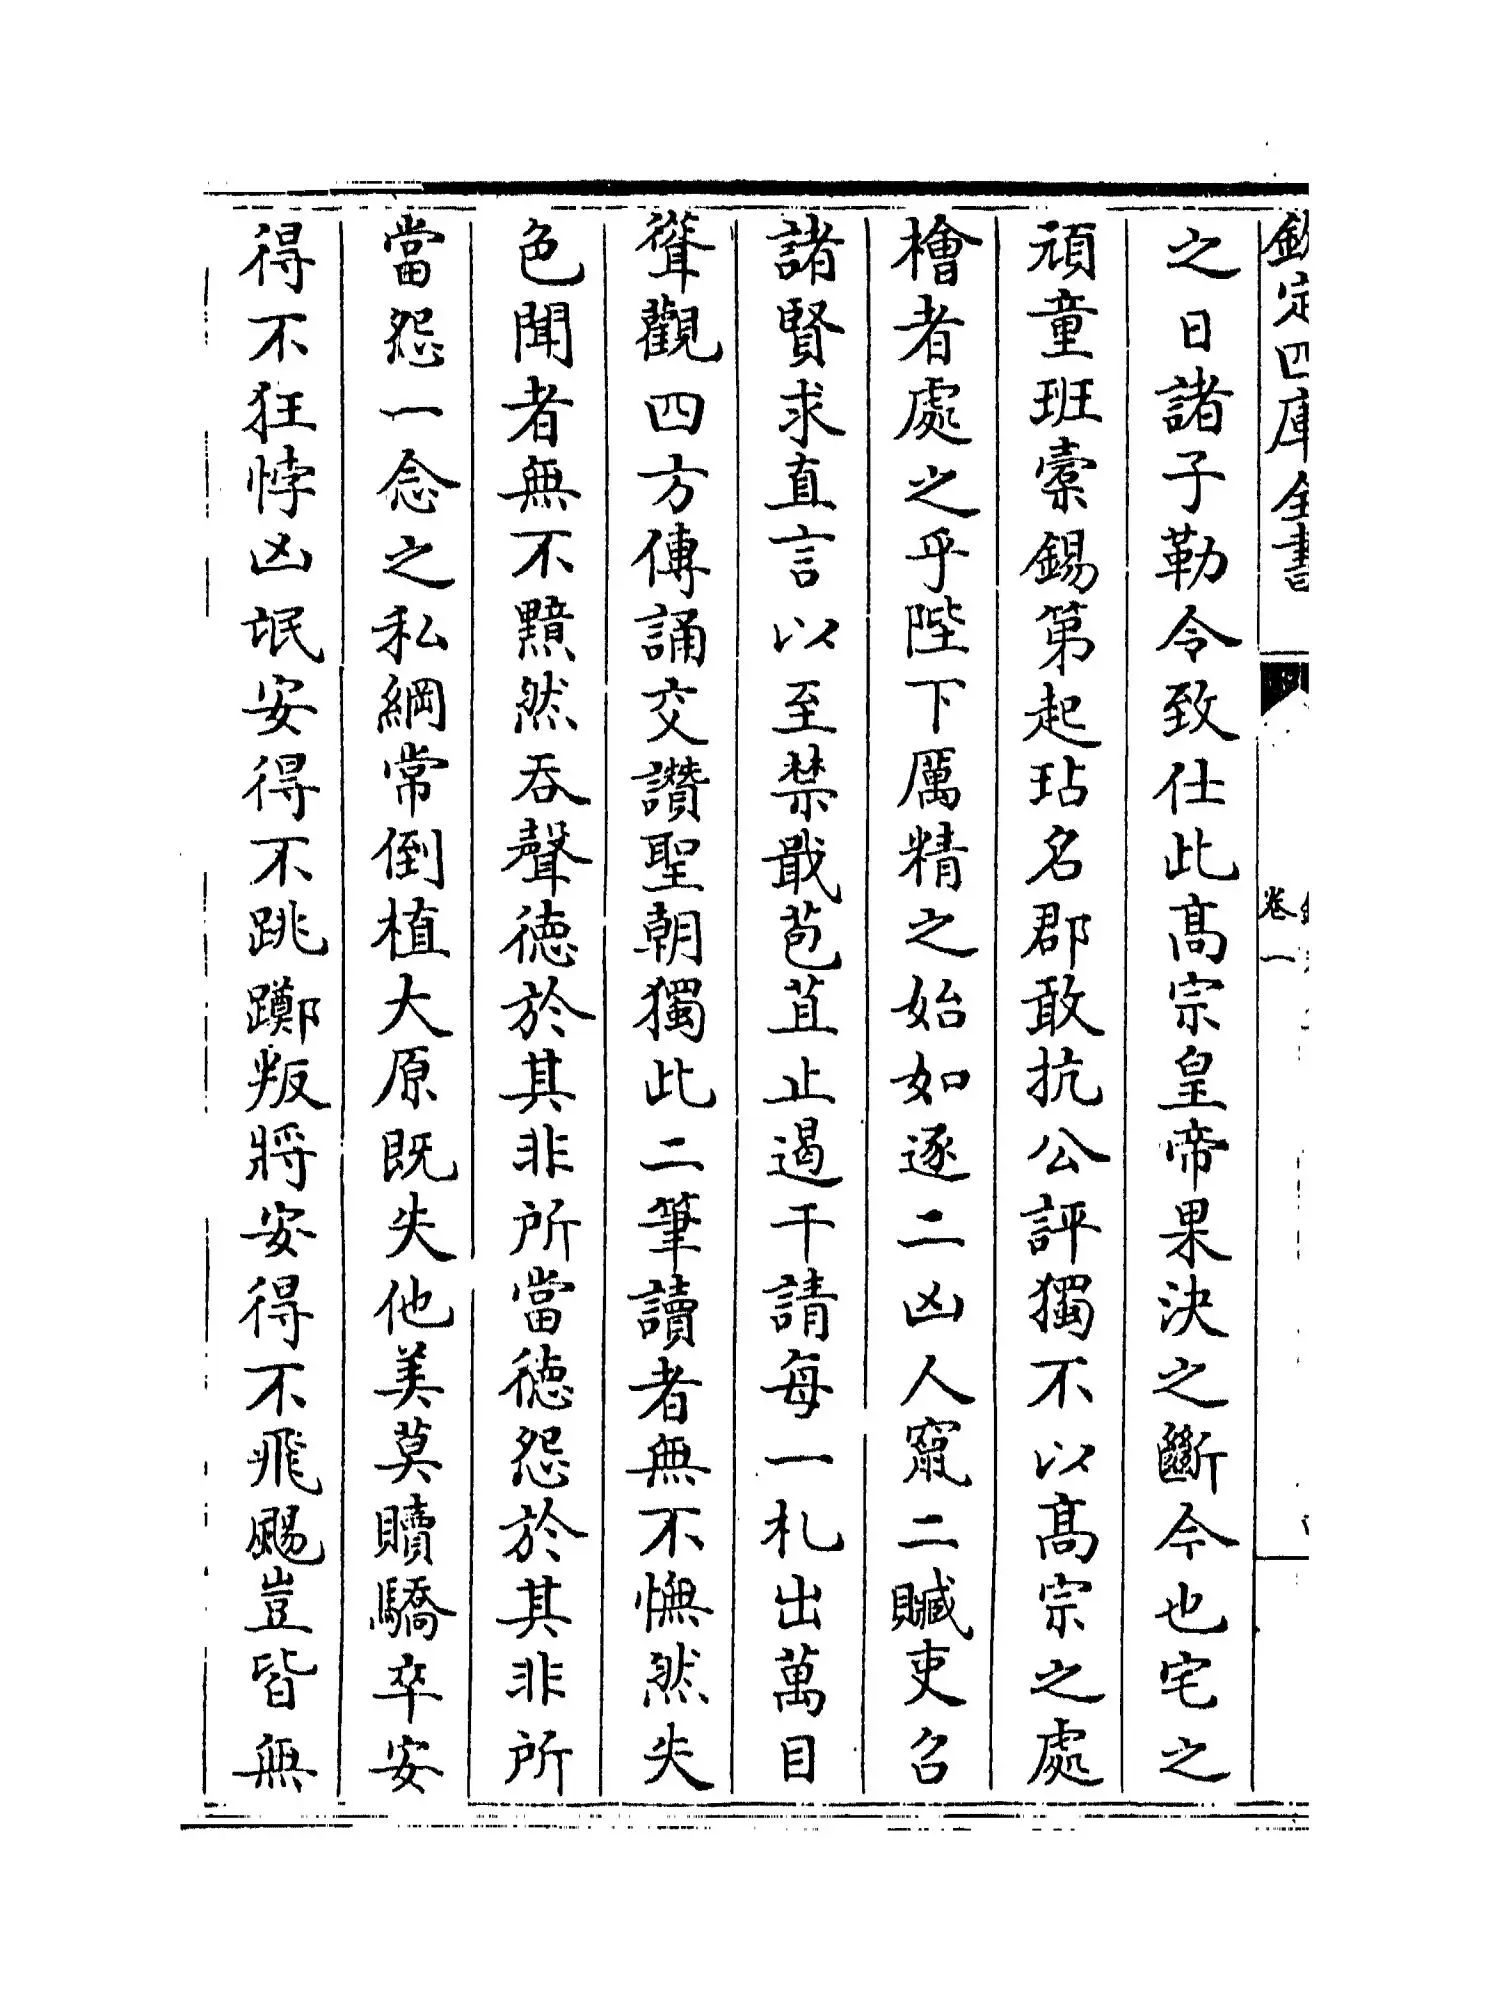 欽定四庫全書
卷一
之日諸子勒令致仕此髙宗皇帝果決之斷今也宅之
頑童班索錫第起玷名郡敢抗公評獨不以髙宗之處
檜者處之乎陛下厲精之始如逐二凶人竄二贓吏召
諸賢求直言以至禁戢苞苴止遏干請每一札出萬目
聳觀四方傳誦交讚聖朝獨此二筆讀者無不憮然失
色聞者無不黯然吞聲徳於其非所當徳怨於其非所
當怨一念之私綱常倒植大原既失他美莫贖驕卒安
得不狂悖凶氓安得不跳躑叛將安得不飛颺豈皆無